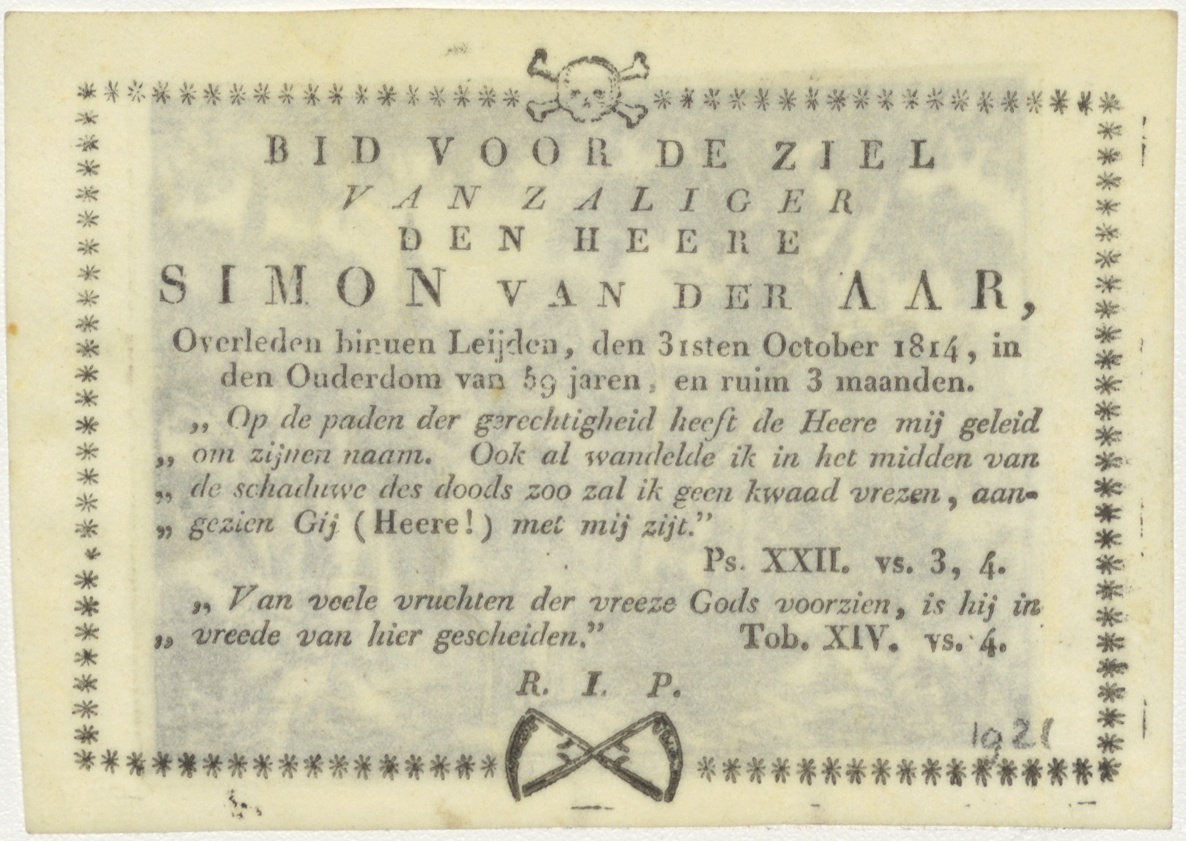 BID VOOR DE ZIEL
VAN ZALIGER
DEN HEERE
SIMON VAN DER AAR,
Overleden binnen Leijden, den 31sten October 1814, in
den Ouderdom van 59 jaren, en ruim 3 maanden.
„ Op de paden der gerechtigheid heeft de Heere mij geleid
„ om zijnen naam. Ook al wandelde ik in het midden van
„ de schaduwe des doods zoo zal ik geen kwaad vrezen, aan-
„ gezien Gij (Heere!) met mij zijt.”
Ps. XXII. vs. 3, 4.
„ Van veele vruchten der vreeze Gods voorzien, is hij in
„ vreede van hier gescheiden.” Tob. XIV. vs. 4.
R. I. P.
1921